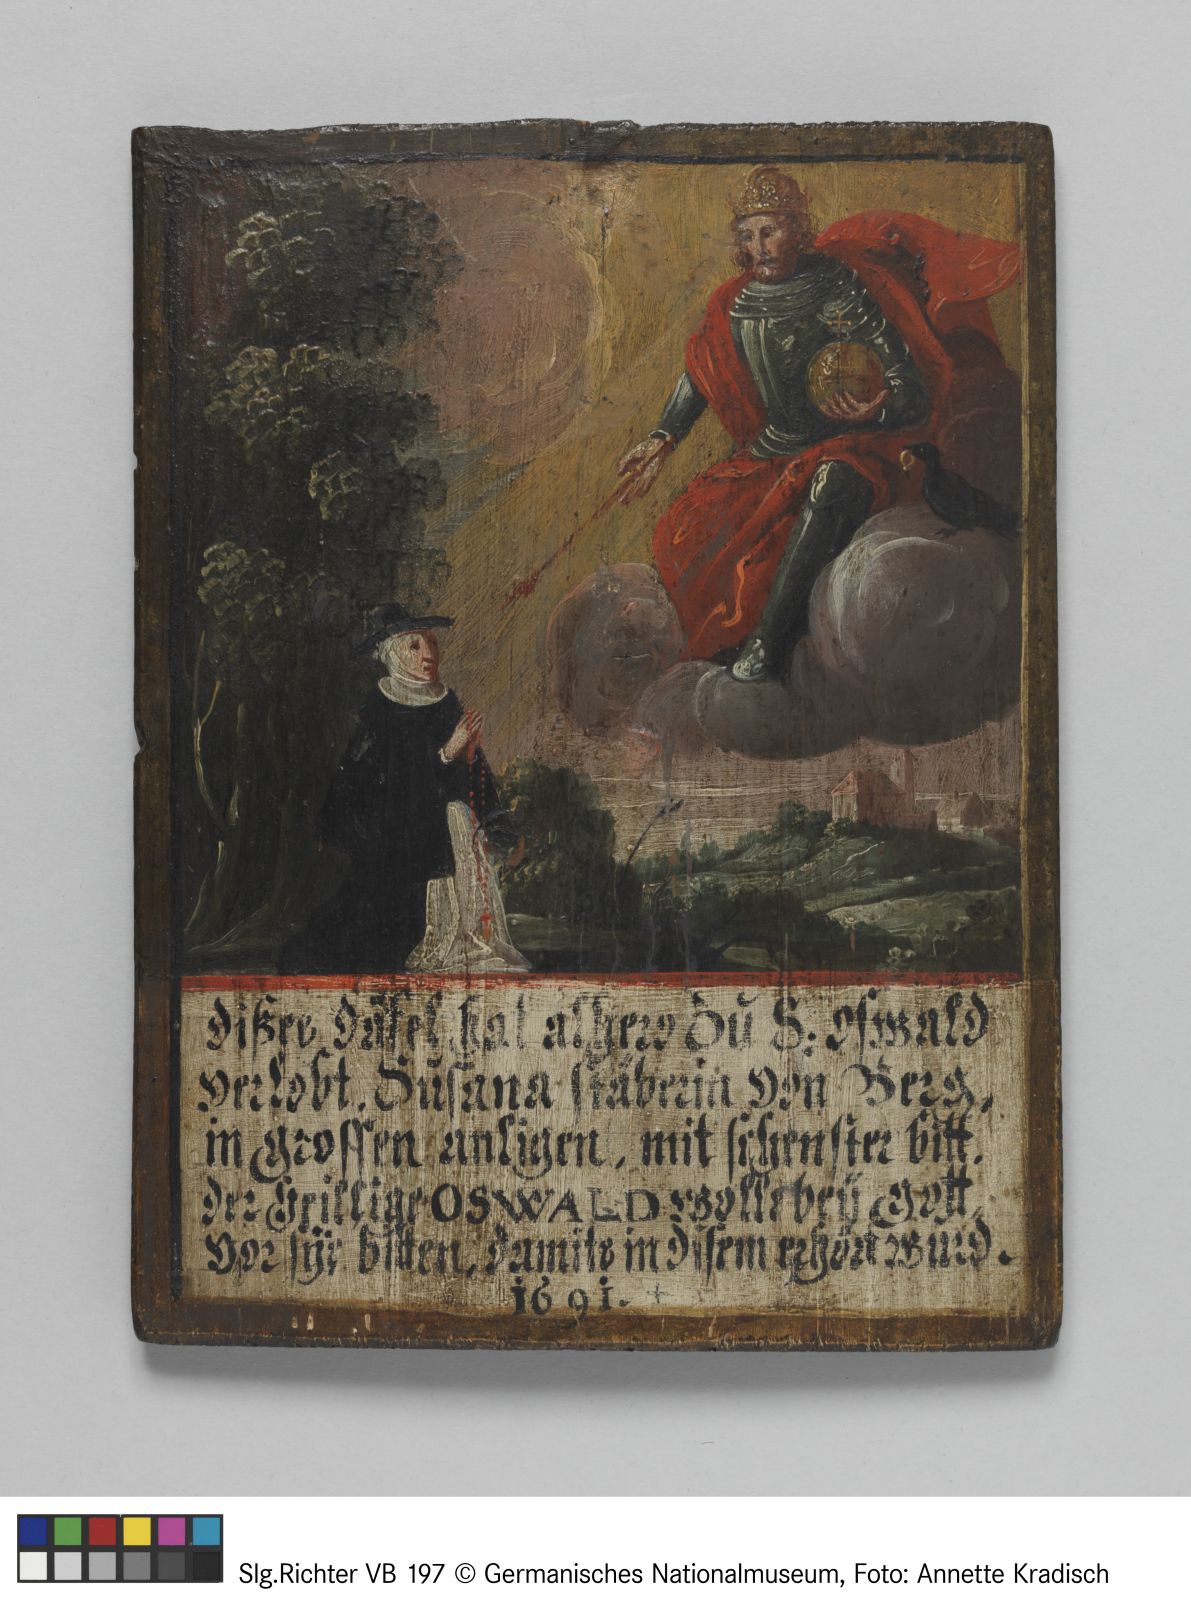 dißes däfel hat alhero Zu S: oswald
verlobt. Susana stäberin von Berg,
in grossen anligen, mit schenster bitt.
der heillige OSWALD wolle beÿ gott,
vor sÿe bitten, damits in disem erhört wurd.
1691.
Slg.Richter VB 197 © Germanisches Nationalmuseum, Foto: Annette Kradisch